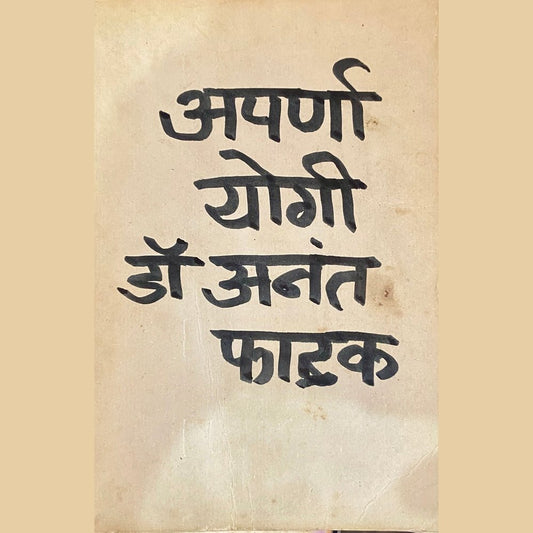 अपर्णा
योगी
डॉ अनंत
फाटक